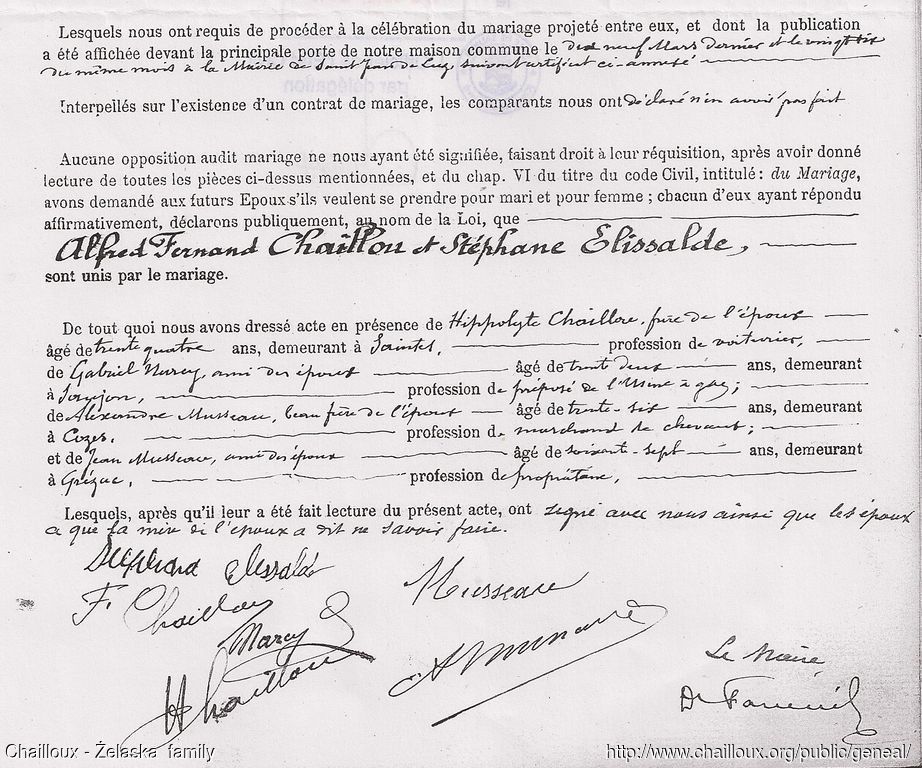 Lesquels nous ont requis de procéder à la célébration du mariage projeté entre eux, et dont la publication
a été affichée devant la principale porte de notre maison commune le dix neuf Mars dernier et le vingt six
du même mois à la Mairie de Saint Jean de Luz, suivant certificat ci-annexé
Interpellés sur l'existence d'un contrat de mariage, les comparants nous ont déclaré n'en avoir pas fait
Aucune opposition audit mariage ne nous ayant été signifiée, faisant droit à leur réquisition, après avoir donné
lecture de toutes les pièces ci-dessus mentionnées, et du chap. VI du titre du code Civil, intitulé : du Mariage,
avons demandé aux futurs Epoux s'ils veulent se prendre pour mari et pour femme ; chacun d'eux ayant répondu
affirmativement, déclarons publiquement, au nom de la Loi, que
Alfred Fernand Chaillou et Stéphane Elissalde,
sont unis par le mariage.
De tout quoi nous avons dressé acte en présence de Hippolyte Chaillou, frère de l'époux
âgé de trente quatre ans, demeurant à Saintes, profession de voiturier,
de Gabriel Narcy, ami des époux âgé de trente deux ans, demeurant
à Saujon, profession de préposé de l'Usine à gaz ;
de Alexandre Musseau, beau frère de l'époux âgé de trente-six ans, demeurant
à Cozes, profession de marchand de chevaux ;
et de Jean Musseau, ami des époux âgé de soixante-sept ans, demeurant
à Grézac, profession de propriétaire,
Lesquels, après qu'il leur a été fait lecture du présent acte, ont signé avec nous ainsi que les époux
a que la mère de l'époux a dit ne savoir faire.
Stéphana Elissalde
F. Chaillou
Musseau
Narcy
H Chaillou
Le Maire
Dr
Chailloux - Żelaska family
http://www.chailloux.org/public/geneal/